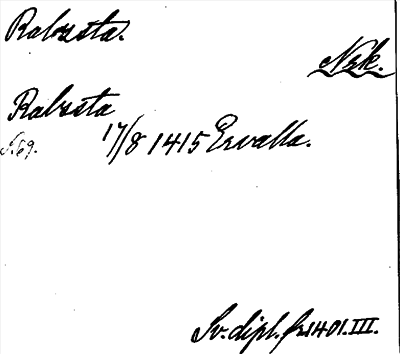 Rabesta.
Nsk.
Rabesta
S. 69.
17/8 1415 Ervalla.
Sv. dipl. fr 1401. III.